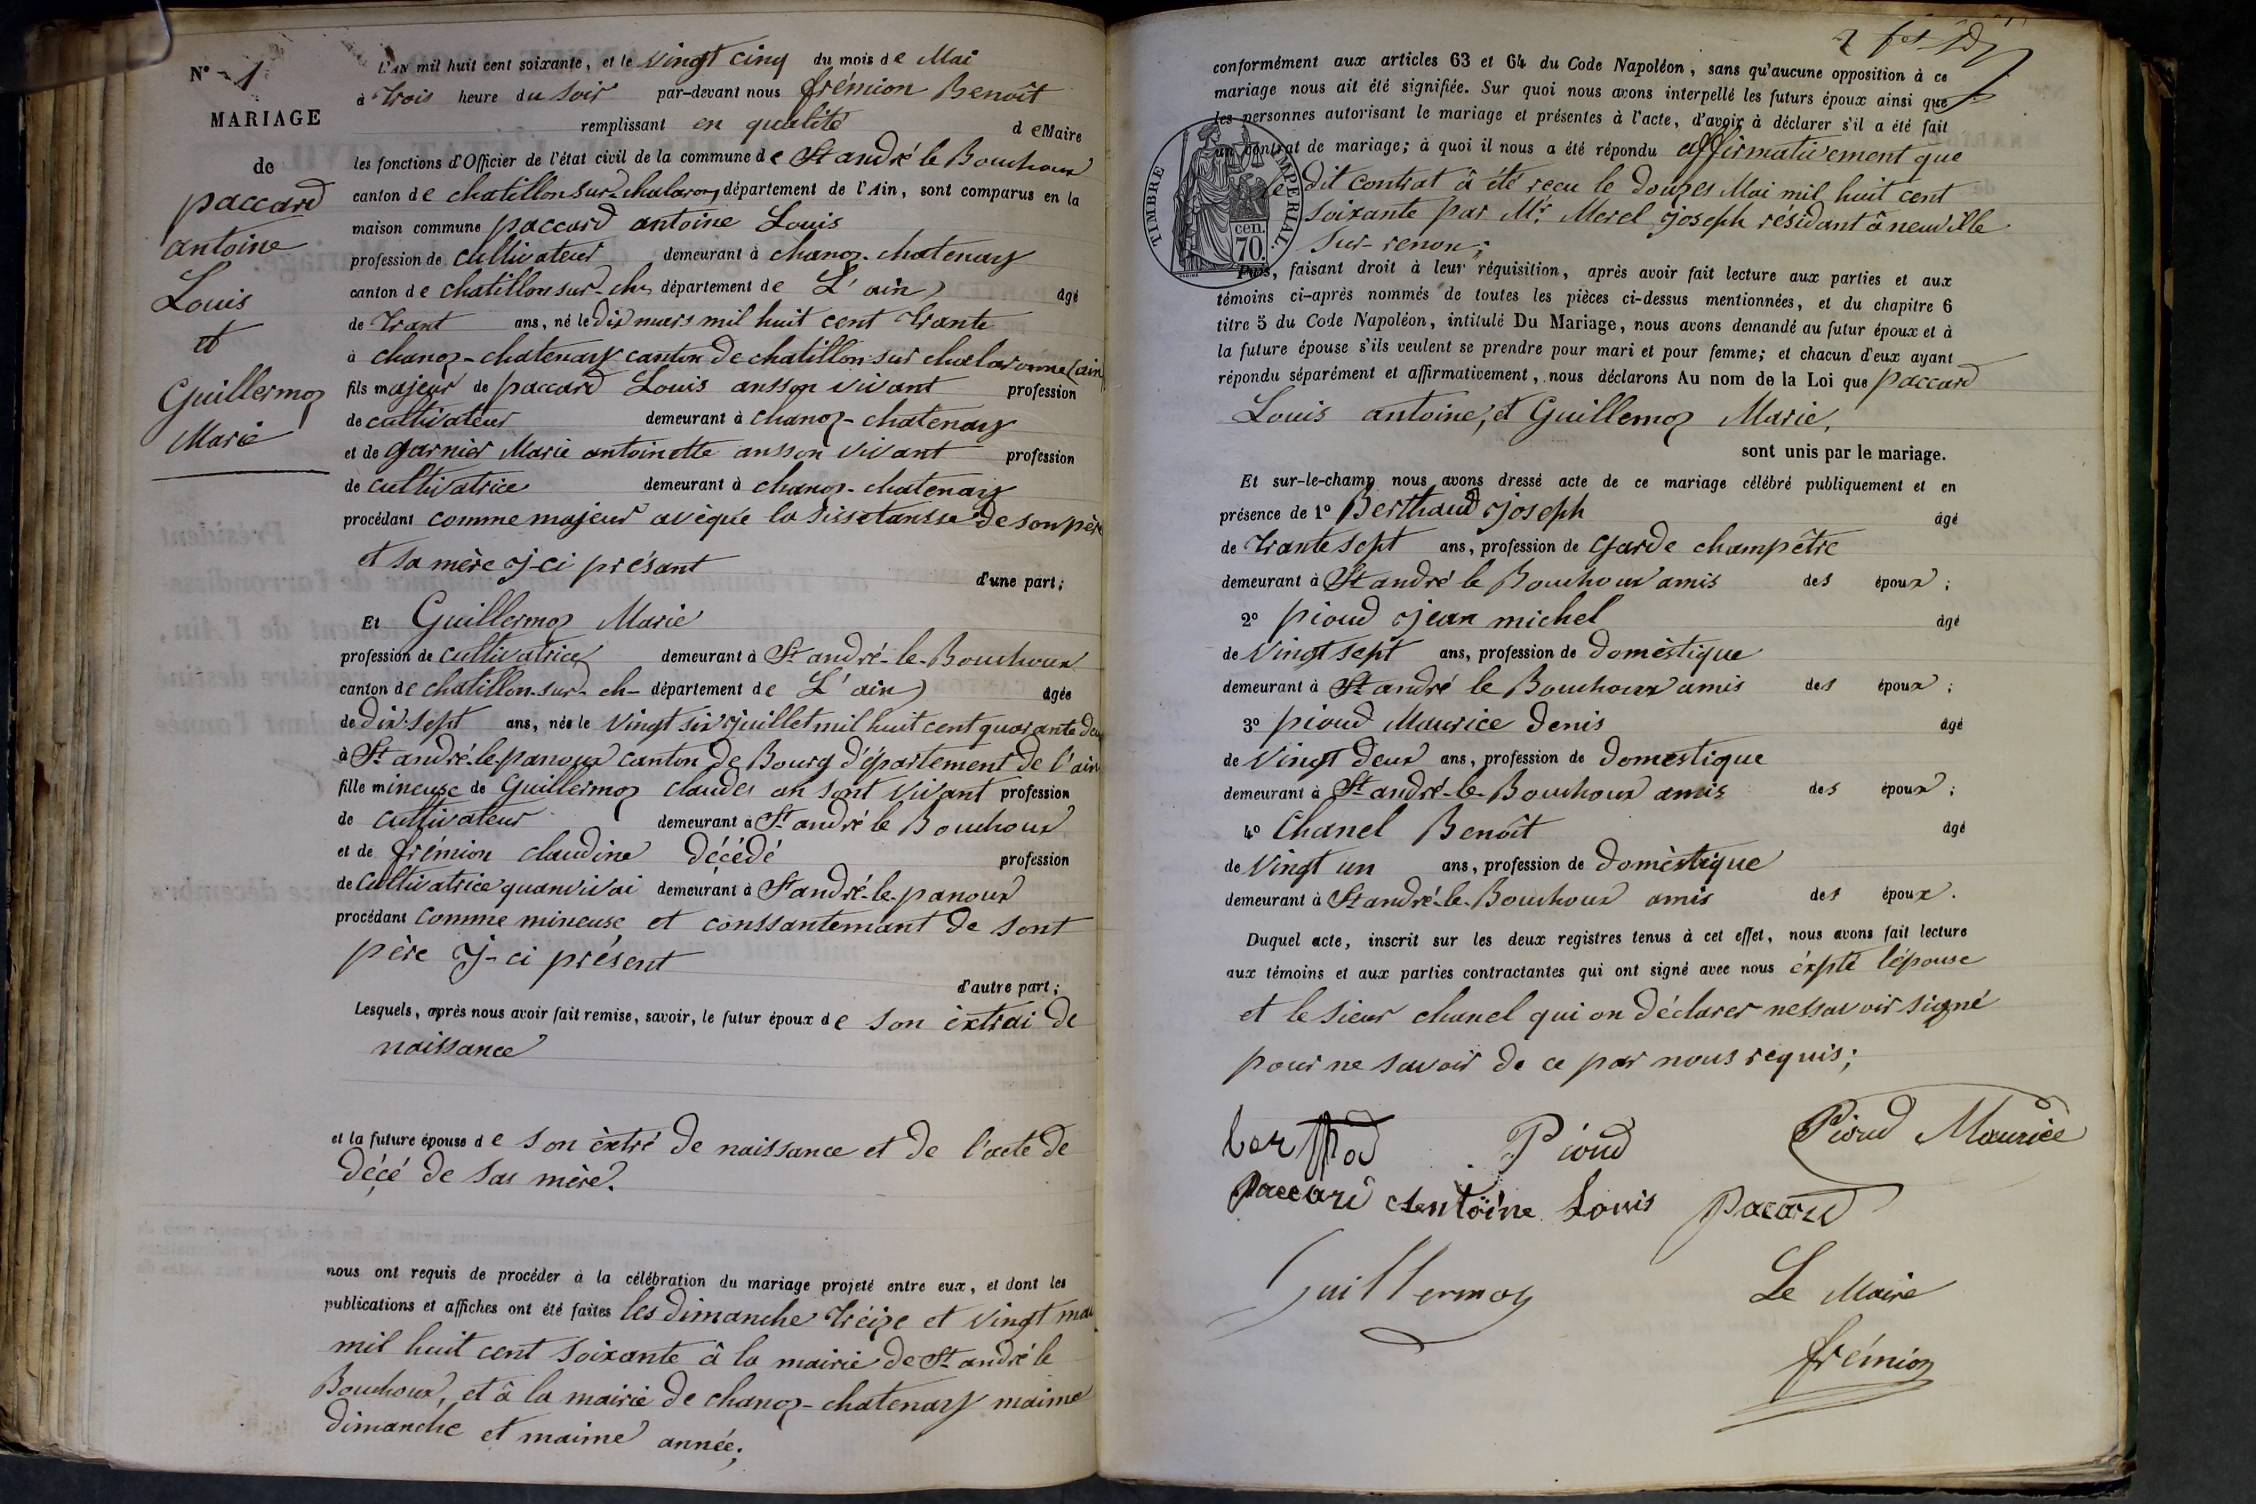 N° 1
MARIAGE
de
paccard
antoine
Louis
et
Guillermoz
Marie
L'AN mil huit cent soixante, et le vingt cinq du mois de Mai
à trois heure du soir par-devant nous frémion Benoît
remplissant en qualité de Maire
les fonctions d'Officier de l'état civil de la commune de St andré le Bouchoux
canton de chatillon sur chalaron, département de l'Ain, sont comparus en la
maison commune paccard antoine Louis
profession de cultivateur demeurant à chanoz-chatenay
canton de chatillon sur-ch département de L'ain agé
de trant ans, né le dix mars mil huit cent trante
à chanoz-chatenay canton de chatillon sur chalaronne (ain
fils majeur de paccard Louis ansson vivant profession
de cultivateur demeurant à chanoz-chatenay
et de garnier Marie antoinette ansson vivant profession
de cultivatrice demeurant à chanoz-chatenay
procédant comme majeur avèque la sissetansse de son père
et sa mère y-ci présant d'une part;
Et Guillermoz Marie
profession de cultivatrice demeurant à St andré-le-Bouchoux
canton de chatillon-sur-ch- département de L'ain agée
de dix-sept ans, née le vingt six juillet mil huit cent quarante deu
à St andré-le-panoux canton de Bourg département de l'ain
fille mineuse de Guillermoz claudes an sont vivant profession
de cultivateur demeurant à St andré le Bouchoux
et de frémion claudine décédé profession
de cultivatrice quanvivai demeurant à St andré-le-panoux
procédant comme mineuse et conssantemant de sont
père y-ci présent
d'autre part;
Lesquels, après nous avoir fait remise, savoir, le futur époux de son èxtrai de
naissance
et la future épouse de son èxtré de naissance et de l'acte de
décé de sas mère.
nous ont requis de procéder à la célébration du mariage projeté entre eux, et dont les
publications et affiches ont été faites les dimanche trèize et vingt mai
mil huit cent soixante à la mairie de St andré le
Bouchoux, et à la mairie de chanoz-chatenay maime
dimanche et maime année;
conformément aux articles 63 et 64 du Code Napoléon, sans qu'aucune opposition à ce
mariage nous ait été signifiée. Sur quoi nous avons interpellé les futurs époux ainsi que
les personnes autorisant le mariage et présentes à l'acte, d'avoir à déclarer s'il a été fait
un contrat de mariage; à quoi il nous a été répondu affirmativement que
le dit contrat à été reçu le douzes Mai mil huit cent
soixante par Mr. Merel joseph résidant à neuville
sur-renon;
TIMBRE IMPERIAL.
cen.
70.
Puis, faisant droit à leur réquisition, après avoir fait lecture aux parties et aux
témoins ci-après nommés de toutes les pièces ci-dessus mentionnées, et du chapitre 6
titre 5 du Code Napoléon, intitulé Du Mariage, nous avons demandé au futur époux et à
la future épouse s'ils veulent se prendre pour mari et pour femme; et chacun d'eux ayant
répondu séparément et affirmativement, nous déclarons Au nom de la Loi que paccard
Louis antoine, et Guillemoz Marie,
sont unis par le mariage.
Et sur-le-champ nous avons dressé acte de ce mariage célébré publiquement et en
présence de 1° Berthaud joseph âgé
de trante sept ans, profession de garde champêtre
demeurant à St andré le Bouchoux amis des époux;
2° pioud jean michel âgé
de vingt sept ans, profession de domèstique
demeurant à St andré le Bouchoux amis des époux;
3° pioud Maurice denis âgé
de vingt deux ans, profession de domestique
demeurant à St andré-le-Bouchoux amis des époux;
4° Chanel Benoît âgé
de vingt un ans, profession de domèstique
demeurant à St andré-le-Bouchoux amis des époux.
Duquel acte, inscrit sur les deux registres tenus à cet effet, nous avons fait lecture
aux témoins et aux parties contractantes qui ont signé avec nous éxpté l'épouse
et le sieur chanel qui on déclarer nessavoir signé
pour ne savoir de ce par nous requis;
berthod Pioud Pioud Maurice
Paccard Antoine Louis Pacard
Guillermoz Le Maire
frémion